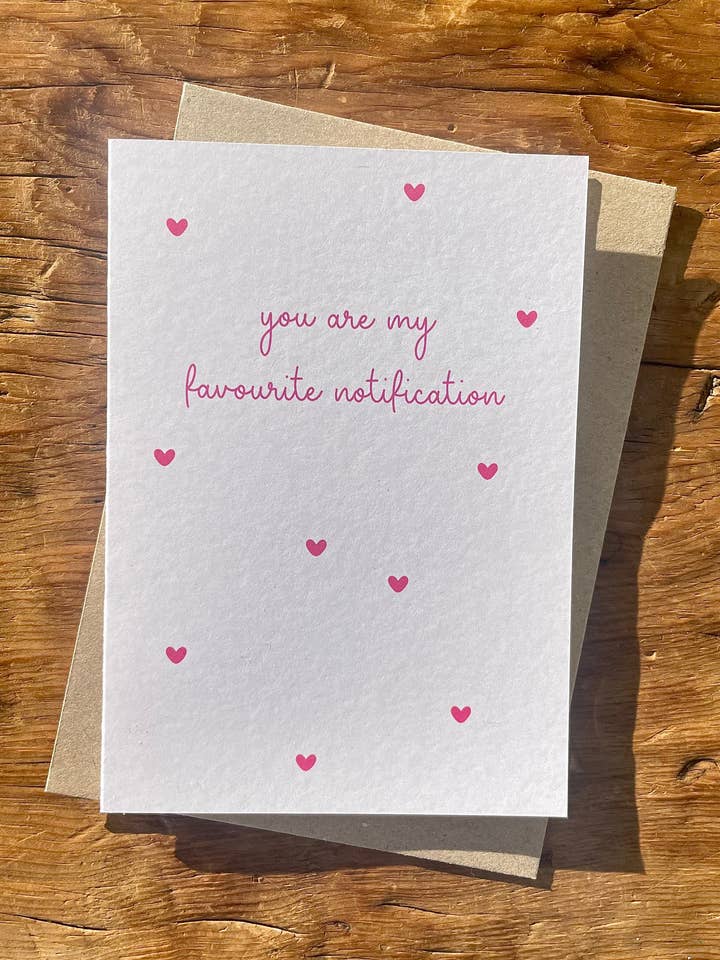 you are my
favourite notification